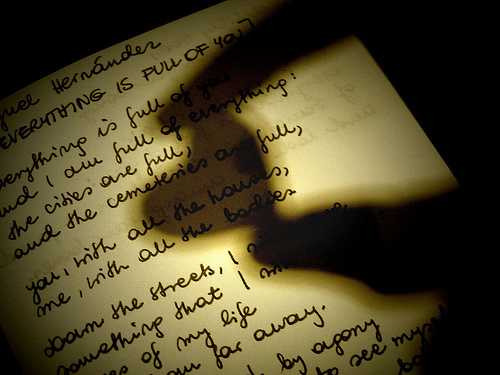 Hernández
EVERYTHING IS FULL OF YOU
everything is full of you
and I am full of everything:
the cities are full,
and the cemeteries are full,
you, with all the houses,
me, with all the bodies
down the streets, I
something that I
of my life
far away.
by agony
to see myse